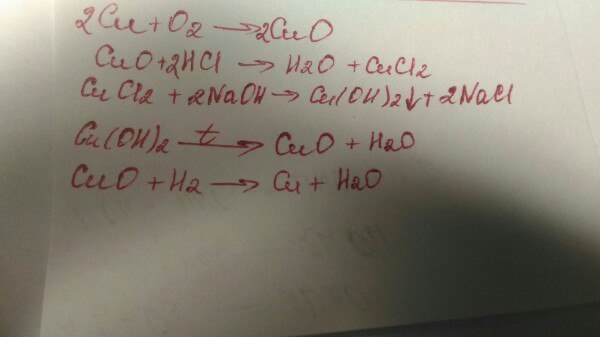 2Cu + O2 → 2CuO
CuO + 2HCl → H2O + CuCl2
CuCl2 + 2NaOH → Cu(OH)2↓ + 2NaCl
Cu(OH)2 —t→ CuO + H2O
CuO + H2 → Cu + H2O